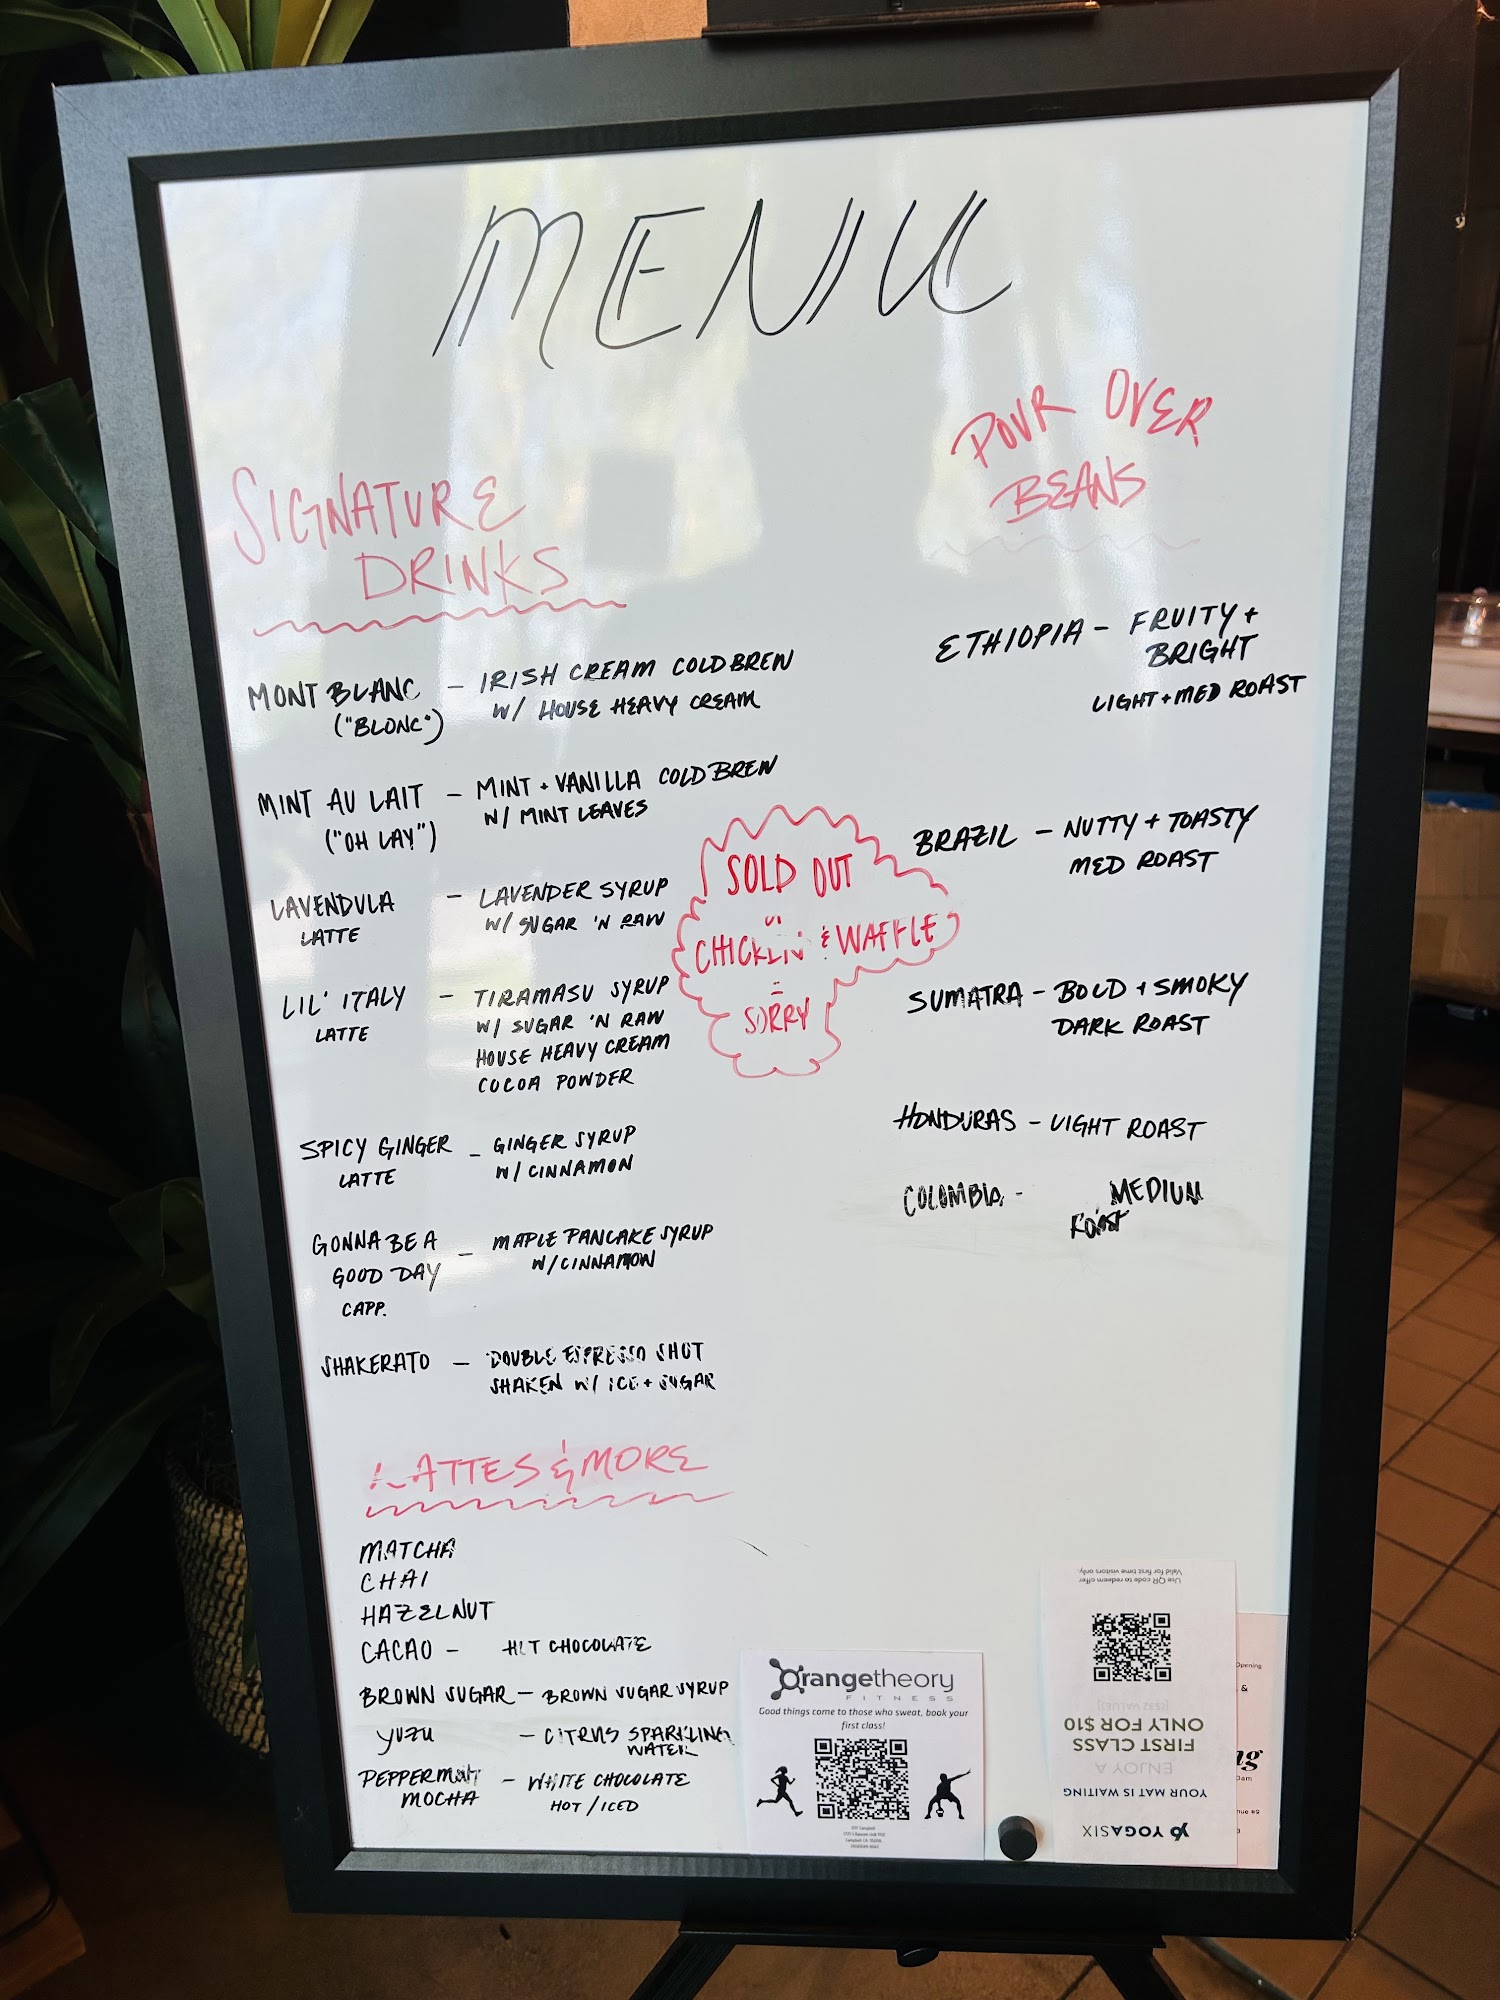 MENU
SIGNATURE
DRINKS
MONT BLANC — IRISH CREAM COLD BREW
("BLONC") W/ HOUSE HEAVY CREAM
MINT AU LAIT — MINT + VANILLA COLD BREW
("OH LAY") W/ MINT LEAVES
LAVENDULA — LAVENDER SYRUP
LATTE W/ SUGAR 'N RAW
LIL' ITALY — TIRAMASU SYRUP
LATTE W/ SUGAR 'N RAW
HOUSE HEAVY CREAM
COCOA POWDER
SPICY GINGER — GINGER SYRUP
LATTE W/ CINNAMON
GONNA BE A — MAPLE PANCAKE SYRUP
GOOD DAY W/ CINNAMON
CAPP.
SHAKERATO — DOUBLE ESPRESSO SHOT
SHAKEN W/ ICE + SUGAR
LATTES & MORE
MATCHA
CHAI
HAZELNUT
CACAO — HOT CHOCOLATE
BROWN SUGAR — BROWN SUGAR SYRUP
YUZU — CITRUS SPARKLING
WATER
PEPPERMINT — WHITE CHOCOLATE
MOCHA HOT / ICED
SOLD OUT
CHICKEN & WAFFLE
SORRY
POUR OVER
BEANS
ETHIOPIA — FRUITY +
BRIGHT
LIGHT + MED ROAST
BRAZIL — NUTTY + TOASTY
MED ROAST
SUMATRA — BOLD + SMOKY
DARK ROAST
HONDURAS — LIGHT ROAST
COLOMBIA - MEDIUM
ROAST
Orangetheory
FITNESS
Good things come to those who sweat, book your
first class!
YOGASIX
YOUR MAT IS WAITING
ENJOY A
FIRST CLASS
ONLY FOR $10
Use QR code to redeem offer
Valid for first time visitors only.
Opening
&